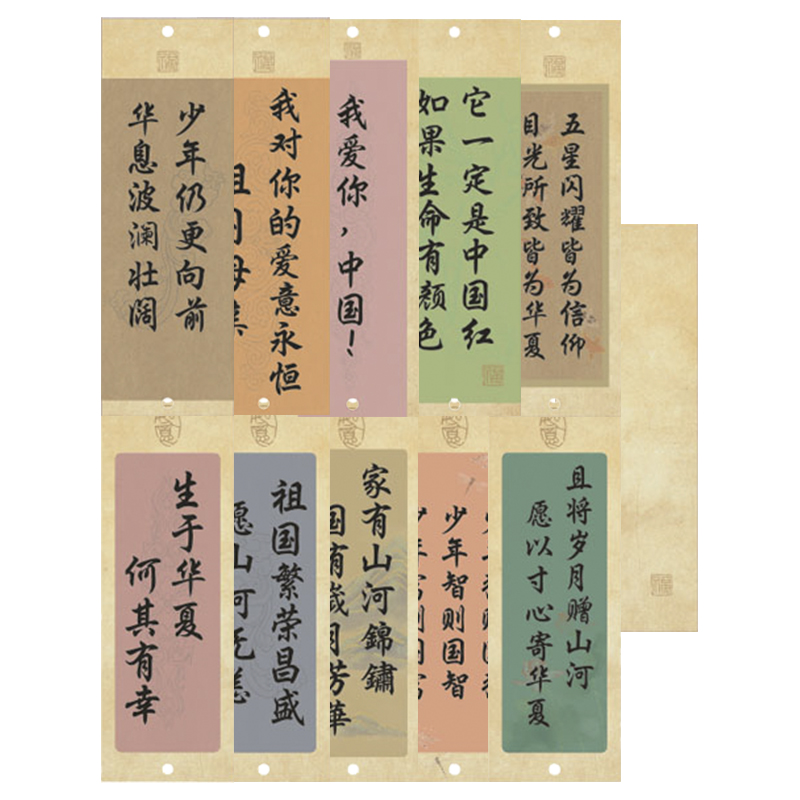 少年仍更向前
华息波澜壮阔
我对你的爱意永恒
我爱你，中国！
它一定是中国红
如果生命有颜色
五星闪耀皆为信仰
目光所致皆为华夏
生于华夏
何其有幸
祖国繁荣昌盛
愿山河无恙
家有山河錦鏽
国有歲月芳華
少年智则国智
且将岁月赠山河
愿以寸心寄华夏